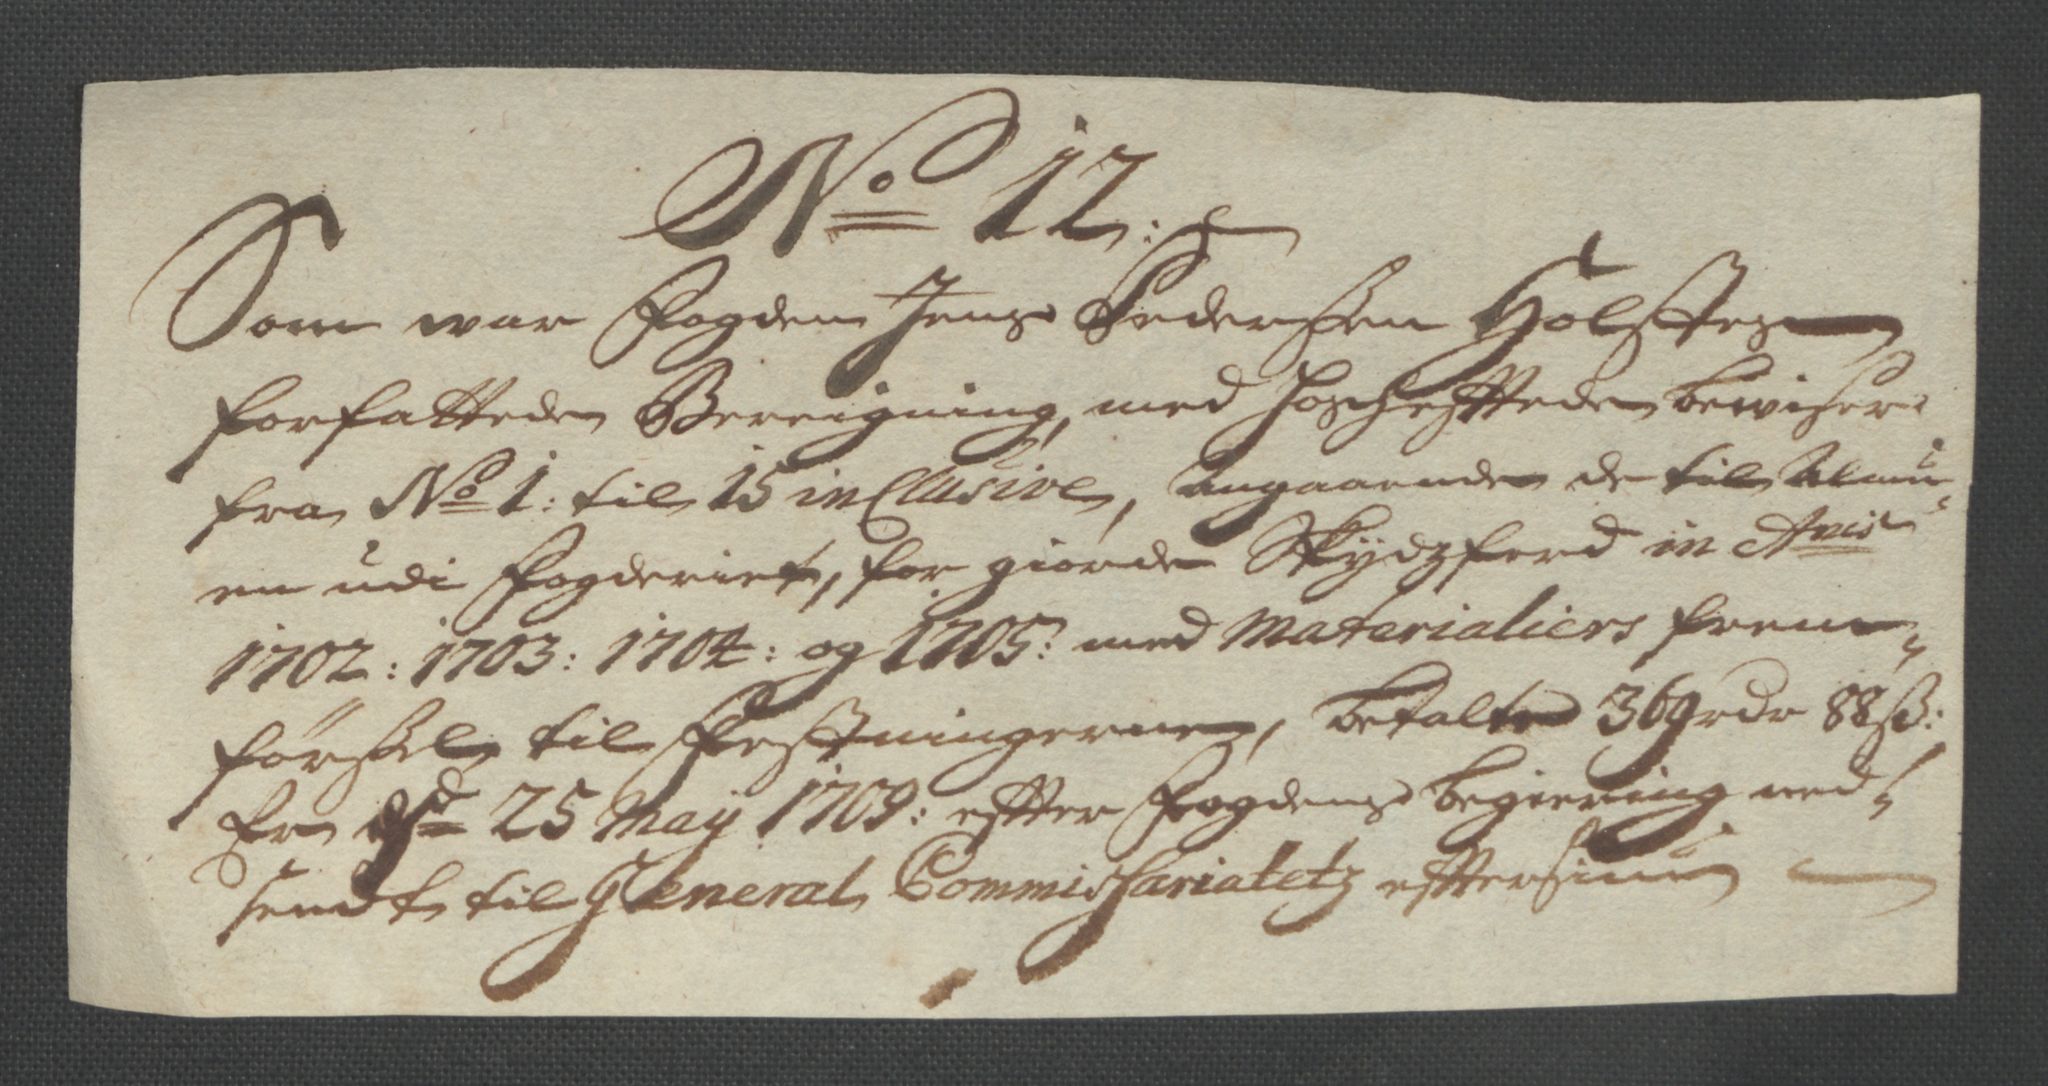 No 12:
Som war Fogden Jens Pederssen Holstes
forfattede Bereigning, med hoshefttede bewiser
fra No 1: til 15 inclusive, angaaende de til Almu-
en udi Fogderiet, for giorde Skydzferd in Anis
1702: 1703: 1704: og 1705: med Materialiers frem-
førssel til Festningerne, betalte 369 rdr 88 s:
Er 25 May 1709: effter Fogdens begiering ned-
sendt til General Commissariatetz efttersiun